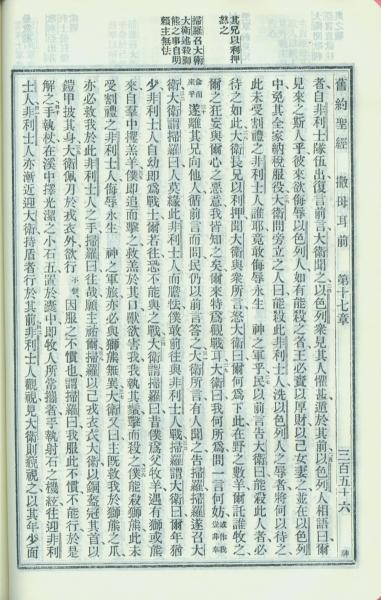 舊約聖經 撒母耳前 第十七章 三百五十六
者自非利士隊伍出復言前言大衛聞之以色列眾見其人懼甚遁於其前以色列人相語曰爾
見來之斯人乎彼來欲侮辱以色列人如有能殺之者王必賞以厚財以己女妻之並在以色列
中免其全家納稅服役大衛問旁立之人曰能殺此非利士人洗以色列人之辱者將何以待之
此未受割禮之非利士人誰耶竟敢侮辱永生 神之軍乎民以前言告大衛曰能殺此人者必
其兄以利押怒之
待之如此大衛長兄以利押聞大衛與眾所言怒大衛曰爾何爲下此在野之數羊爾託誰牧之
爾之狂妄與爾心之惡意我皆知之矣爾來特爲觀戰耳大衛曰我何所爲問一言何妨 或作我豈非奉
命而來乎 遂離其兄向他人循前言而問民仍以前言答之大衛所言有人聞之告掃羅掃羅遂召大
掃羅召大衛
大衛述殺獅
熊之事自明
賴主無怯
衛大衛謂掃羅曰人莫緣此非利士人而膽怯僕敢前往與非利士人戰掃羅謂大衛曰爾年猶
少非利士人自幼即爲戰士爾若往恐不能與之戰大衛謂掃羅曰昔僕爲父牧羊遇有獅或熊
來自羣中攫羔羊僕即追而擊之救羔於其口獸欲害我我執其鬚擊而殺之僕能殺獅熊此未
受割禮之非利士人侮辱永生 神之軍旅亦必與獅熊無異大衛又曰主既救我於獅熊之爪
亦必救我於此非利士人之手掃羅曰往哉願主祐爾掃羅以己戎衣衣大衛以銅盔冠其首以
鎧甲披其身大衛佩刀於戎衣外欲行 因服之不慣也謂掃羅曰我服此不慣不能行於是
解之手執杖在溪中擇光潔之小石五置於囊中即牧人所常攜者手執射石之機絃往迎非利
士人非利士人亦漸近迎大衛持盾者行於其前非利士人觀視見大衛則藐視之以其年少面